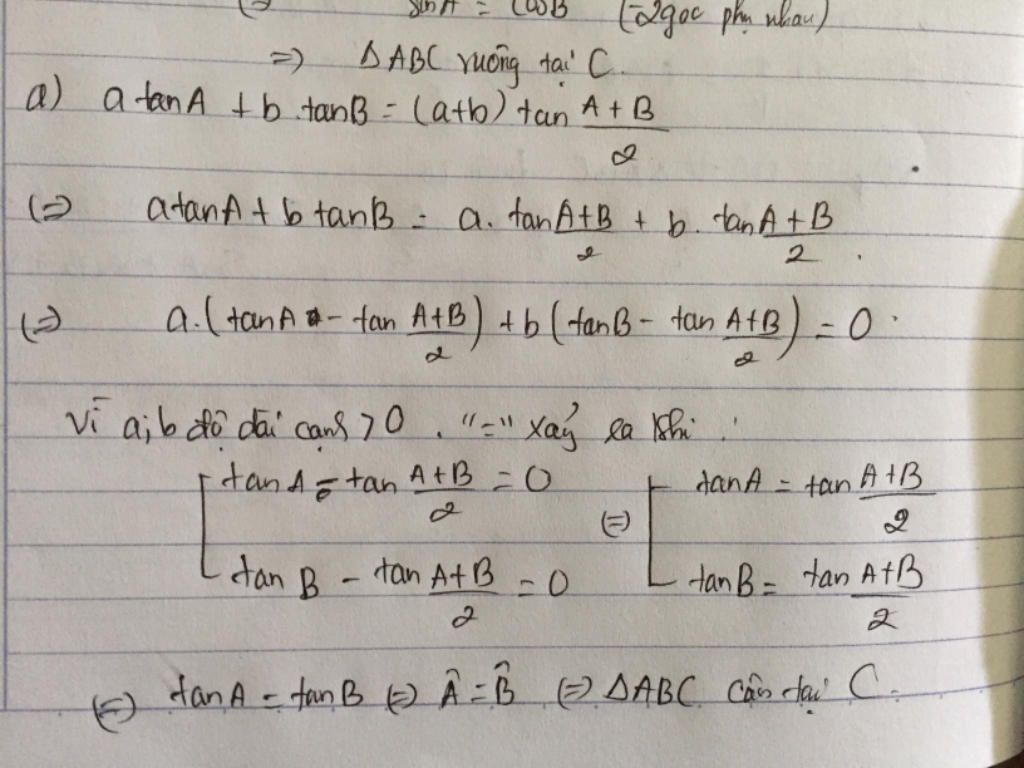 (=) sinA = cosB (2góc phụ nhau)
=) ΔABC vuông tại C.
a) a tanA + b.tanB = (a+b) tan (A+B)/2
(=) a tanA + b tanB = a. tan (A+B)/2 + b. tan (A+B)/2.
(=) a.(tanA - tan (A+B)/2) + b(tanB - tan (A+B)/2) = 0.
Vì a;b độ dài cạnh > 0. "=" xảy ra khi:
[ tanA = tan (A+B)/2 = 0 (=) [ tanA = tan (A+B)/2
tanB - tan (A+B)/2 = 0 tanB = tan (A+B)/2
(=) tanA = tanB (=) Â = B̂ (=) ΔABC cân tại C.